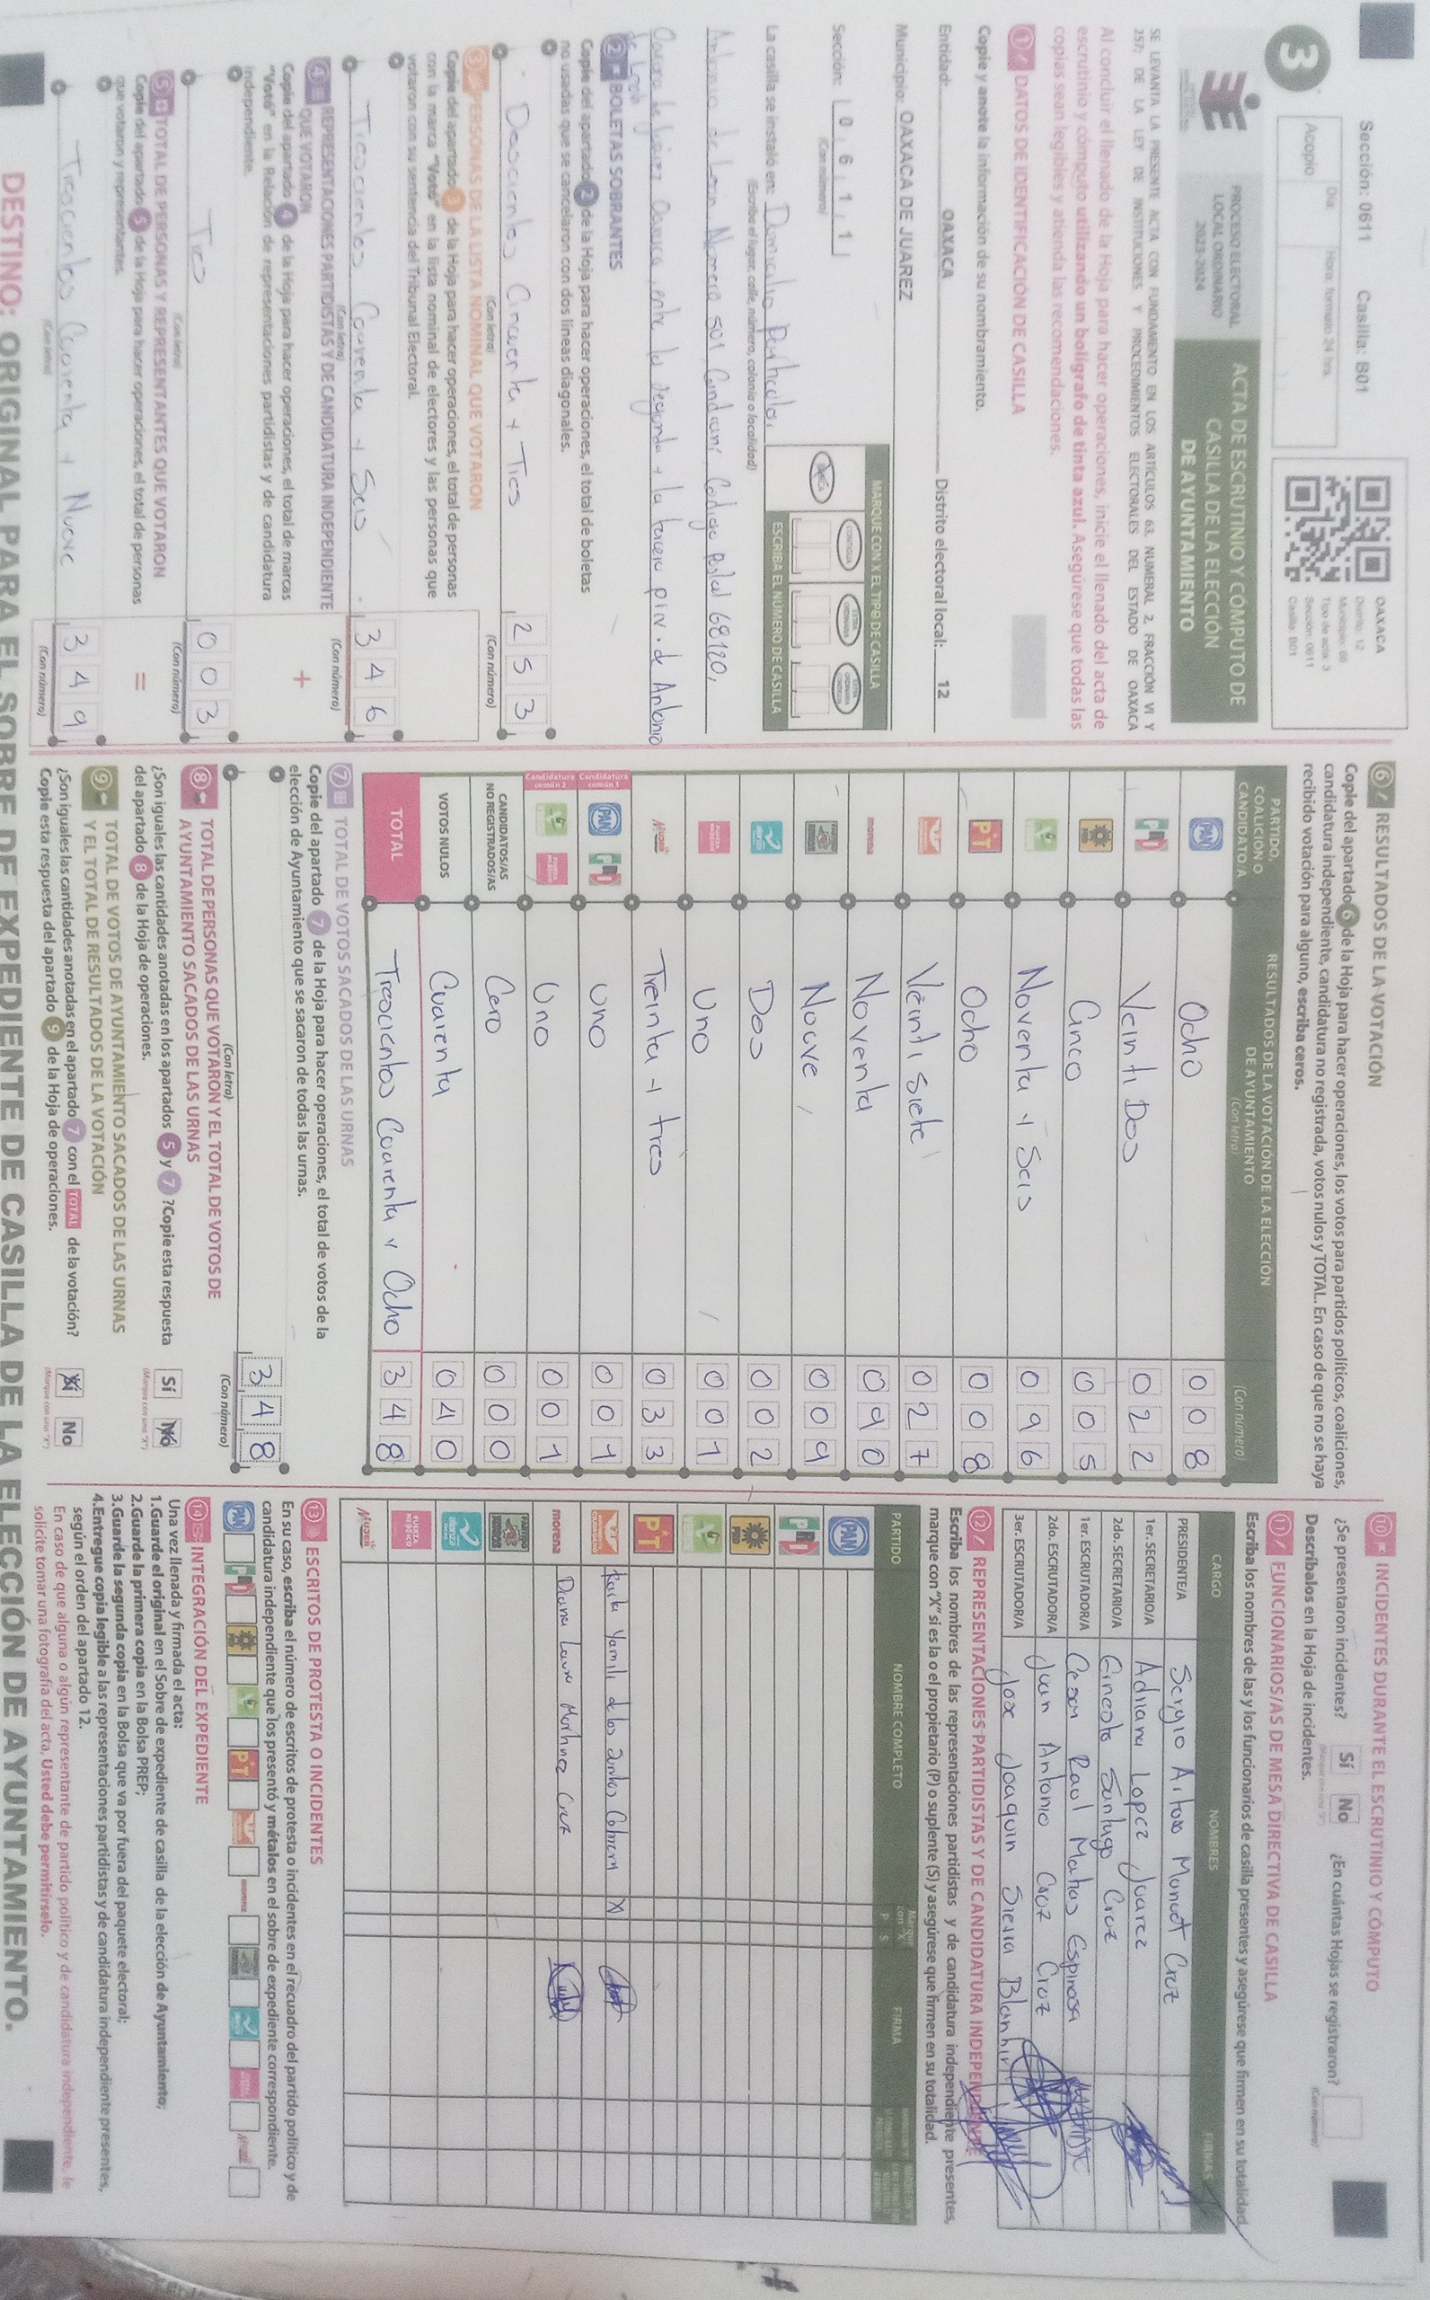 Sección: 0611 Casilla: B01
3
Día Hora: formato 24 hrs.
Acopio
OAXACA
Distrito: 12
Tipo de acta: 3
Sección: 0611
Casilla: B01
PROCESO ELECTORAL
LOCAL ORDINARIO
2023-2024
ACTA DE ESCRUTINIO Y CÓMPUTO DE
CASILLA DE LA ELECCIÓN
DE AYUNTAMIENTO
SE LEVANTA LA PRESENTE ACTA CON FUNDAMENTO EN LOS ARTÍCULOS 63, NUMERAL 2, FRACCIÓN VI Y
257; DE LA LEY DE INSTITUCIONES Y PROCEDIMIENTOS ELECTORALES DEL ESTADO DE OAXACA
Al concluir el llenado de la Hoja para hacer operaciones, inicie el llenado del acta de
escrutinio y cómputo utilizando un bolígrafo de tinta azul. Asegúrese que todas las
copias sean legibles y atienda las recomendaciones.
1 DATOS DE IDENTIFICACIÓN DE CASILLA
Copie y anote la información de su nombramiento.
Entidad: OAXACA Distrito electoral local: 12
Municipio: OAXACA DE JUAREZ
Sección: 0 6 1 1
(Con número)
MARQUE CON X EL TIPO DE CASILLA
ESCRIBA EL NÚMERO DE CASILLA
La casilla se instaló en: Domicilio Particular,
(Escriba el lugar, calle, número, colonia o localidad)
Antonio de Leon Número 501 Candiani Codigo Postal 68120,
Oaxaca de Juarez Oaxaca, entre la segunda y la tercera priv. de Antonio
de Leon
2 BOLETAS SOBRANTES
Copie del apartado 2 de la Hoja para hacer operaciones, el total de boletas
no usadas que se cancelaron con dos líneas diagonales.
Doscientos Cincuenta y Tres 2 5 3
(Con letra) (Con número)
3 PERSONAS DE LA LISTA NOMINAL QUE VOTARON
Copie del apartado 3 de la Hoja para hacer operaciones, el total de personas
con la marca "Votó" en la lista nominal de electores y las personas que
votaron con su sentencia del Tribunal Electoral.
Trescientos Cuarenta y Seis 3 4 6
(Con letra) (Con número)
4 REPRESENTACIONES PARTIDISTAS Y DE CANDIDATURA INDEPENDIENTE
QUE VOTARON
Copie del apartado 4 de la Hoja para hacer operaciones, el total de marcas
"Votó" en la Relación de representaciones partidistas y de candidatura
independiente.
+
Tres 0 0 3
(Con letra) (Con número)
5 TOTAL DE PERSONAS Y REPRESENTANTES QUE VOTARON
Copie del apartado 5 de la Hoja para hacer operaciones, el total de personas
que votaron y representantes.
=
Trescientos Cuarenta y Nueve 3 4 9
(Con letra) (Con número)
6 RESULTADOS DE LA VOTACIÓN
Copie del apartado 6 de la Hoja para hacer operaciones, los votos para partidos políticos, coaliciones,
candidatura independiente, candidatura no registrada, votos nulos y TOTAL. En caso de que no se haya
recibido votación para alguno, escriba ceros.
PARTIDO,
COALICIÓN O
CANDIDATO/A
RESULTADOS DE LA VOTACIÓN DE LA ELECCIÓN
DE AYUNTAMIENTO
(Con letra) (Con número)
PAN Ocho 0 0 8
PRI Veinti Dos 0 2 2
PRD Cinco 0 0 5
Noventa y Seis 0 9 6
PT Ocho 0 0 8
Veinti Siete 0 2 7
morena Noventa 0 9 0
Nueve 0 0 9
Dos 0 0 2
FUERZA MÉXICO Uno 0 0 1
Mujer Treinta y tres 0 3 3
Candidatura común 1 PAN PRI Uno 0 0 1
Candidatura común 2 Uno 0 0 1
CANDIDATOS/AS
NO REGISTRADOS/AS Cero 0 0 0
VOTOS NULOS Cuarenta 0 4 0
TOTAL Trescientos Cuarenta y Ocho 3 4 8
7 TOTAL DE VOTOS SACADOS DE LAS URNAS
Copie del apartado 7 de la Hoja para hacer operaciones, el total de votos de la
elección de Ayuntamiento que se sacaron de todas las urnas.
3 4 8
(Con letra) (Con número)
8 TOTAL DE PERSONAS QUE VOTARON Y EL TOTAL DE VOTOS DE
AYUNTAMIENTO SACADOS DE LAS URNAS
¿Son iguales las cantidades anotadas en los apartados 5 y 7? Copie esta respuesta
del apartado 8 de la Hoja de operaciones.
Sí No
9 TOTAL DE VOTOS DE AYUNTAMIENTO SACADOS DE LAS URNAS
Y EL TOTAL DE RESULTADOS DE LA VOTACIÓN
¿Son iguales las cantidades anotadas en el apartado 7 con el TOTAL de la votación?
Copie esta respuesta del apartado 9 de la Hoja de operaciones.
Sí No
10 INCIDENTES DURANTE EL ESCRUTINIO Y CÓMPUTO
¿Se presentaron incidentes? Sí No ¿En cuántas Hojas se registraron?
Descríbalos en la Hoja de incidentes.
11 FUNCIONARIOS/AS DE MESA DIRECTIVA DE CASILLA
Escriba los nombres de las y los funcionarios de casilla presentes y asegúrese que firmen en su totalidad.
CARGO NOMBRES FIRMAS
PRESIDENTE/A Sergio Artoss Manuet Cruz
1er. SECRETARIO/A Adriana Lopez Juarez
2do. SECRETARIO/A Ernesto Santiago Cruz
1er. ESCRUTADOR/A Cesar Raul Matias Espinosa
2do. ESCRUTADOR/A Juan Antonio Cruz Cruz
3er. ESCRUTADOR/A Jose Joaquin Sierra
12 REPRESENTACIONES PARTIDISTAS Y DE CANDIDATURA INDEPENDIENTE
Escriba los nombres de las representaciones partidistas y de candidatura independiente presentes,
marque con "X" si es la o el propietario (P) o suplente (S) y asegúrese que firmen en su totalidad.
PARTIDO NOMBRE COMPLETO P S FIRMA
PAN
PRI
PRD
PT
Yamil de los Santos X
morena Laura Martinez Cruz
FUERZA MÉXICO
Mujer
13 ESCRITOS DE PROTESTA O INCIDENTES
En su caso, escriba el número de escritos de protesta o incidentes en el recuadro del partido político y de
candidatura independiente que los presentó y métalos en el sobre de expediente correspondiente.
14 INTEGRACIÓN DEL EXPEDIENTE
Una vez llenada y firmada el acta:
1.Guarde el original en el Sobre de expediente de casilla de la elección de Ayuntamiento;
2.Guarde la primera copia en la Bolsa PREP;
3.Guarde la segunda copia en la Bolsa que va por fuera del paquete electoral;
4.Entregue copia legible a las representaciones partidistas y de candidatura independiente presentes,
según el orden del apartado 12.
En caso de que alguna o algún representante de partido político y de candidatura independiente, le
solicite tomar una fotografía del acta, Usted debe permitírselo.
DESTINO: ORIGINAL PARA EL SOBRE DE EXPEDIENTE DE CASILLA DE LA ELECCIÓN DE AYUNTAMIENTO.